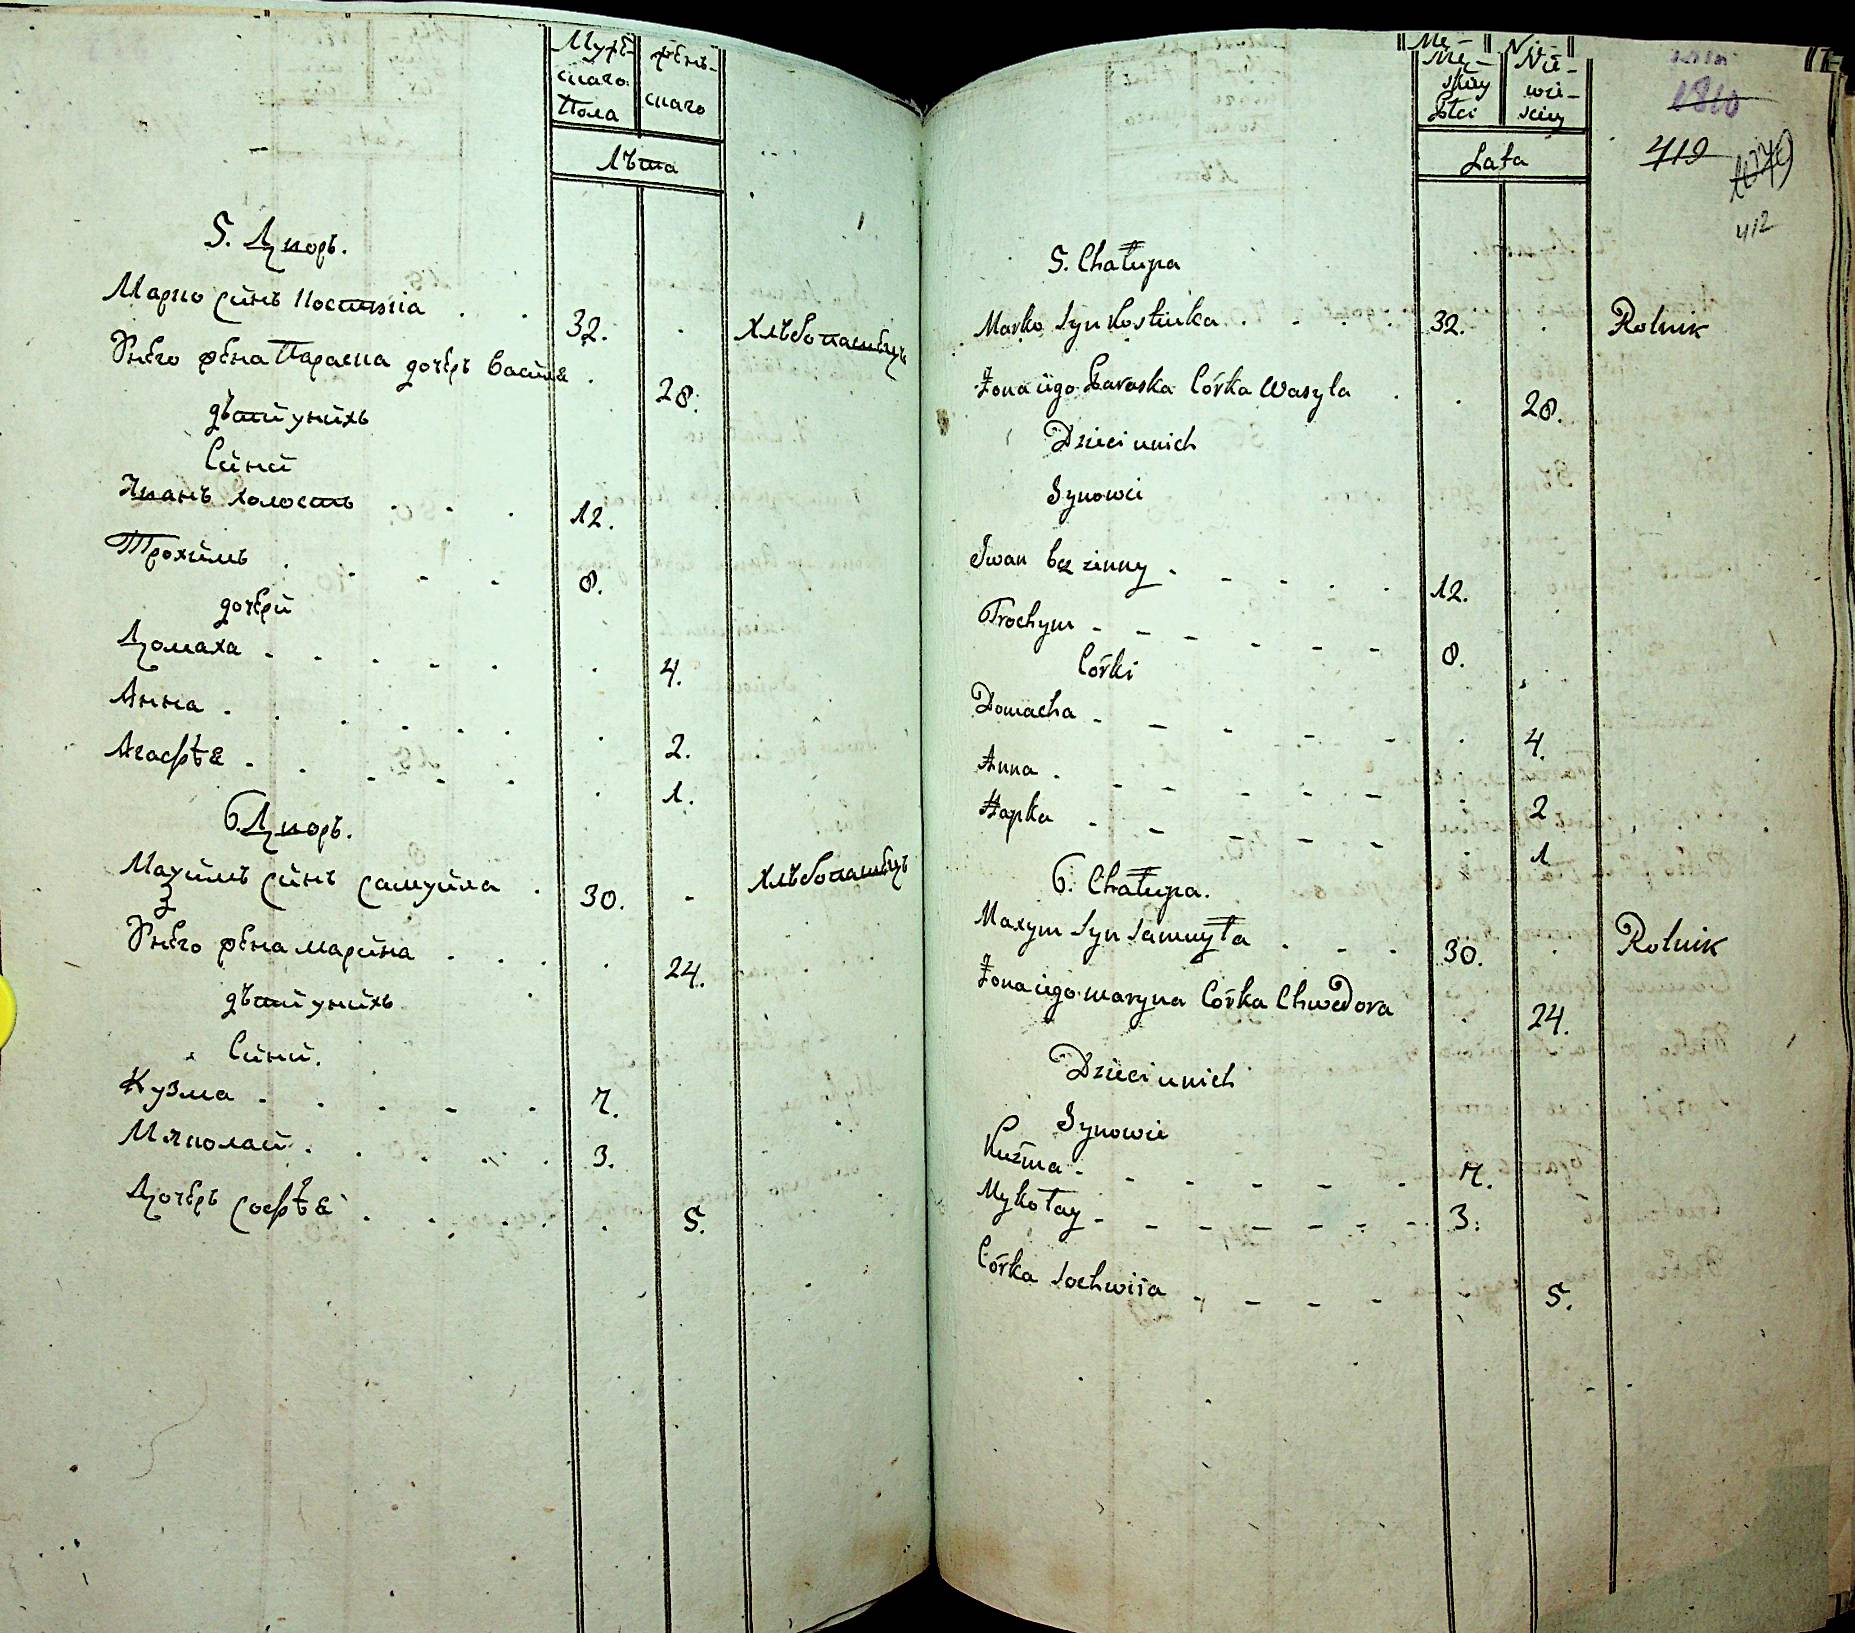 Мужескаго Пола
женскаго
лѣта
5. Дворъ.
Марко сынъ Костюка . . 32. . Хлѣбопашецъ
Унего жена Параска дочерь Василя . 28.
дѣти унихъ
Сини
Иванъ холостъ . . . 12.
Трохимъ . . . . 8.
дочери
Домаха . . . . . . 4.
Анна . . . . . . 2.
Агафѣя . . . . . . 1.
6. Дворъ.
Махимъ синъ самуила . 30. - Хлѣбопашецъ
Унего жена марина . . . . 24.
дѣти унихъ
Сини.
Кузма . . . . . 7.
Миколай . . . . . 3.
Дочерь софѣя . . . . . 5.
Męskiey Płci
Niewieściey
Lata
1810
419
412
5. Chałupa
Marko Syn Kostiuka . . . . 32. . Rolnik
Żona iigo Paraska Córka Wasyla . . 28.
Dzieci unich
Synowie
Iwan bez zinny . - - - . 12.
Trochym - - - - - - 8.
Córki
Domacha - - - - - . 4.
Anna . - - - - - . 2
Hapka - - - - - . 1
6. Chałupa.
Maxym Syn Samuyła . - - 30. . Rolnik
Żona iigo maryna Córka Chwedora . 24.
Dzieci unich
Synowie
Kuźma - - - - - - 7.
Mykołay - - - - - - - 3.
Córka Sochwiia - - - - - 5.